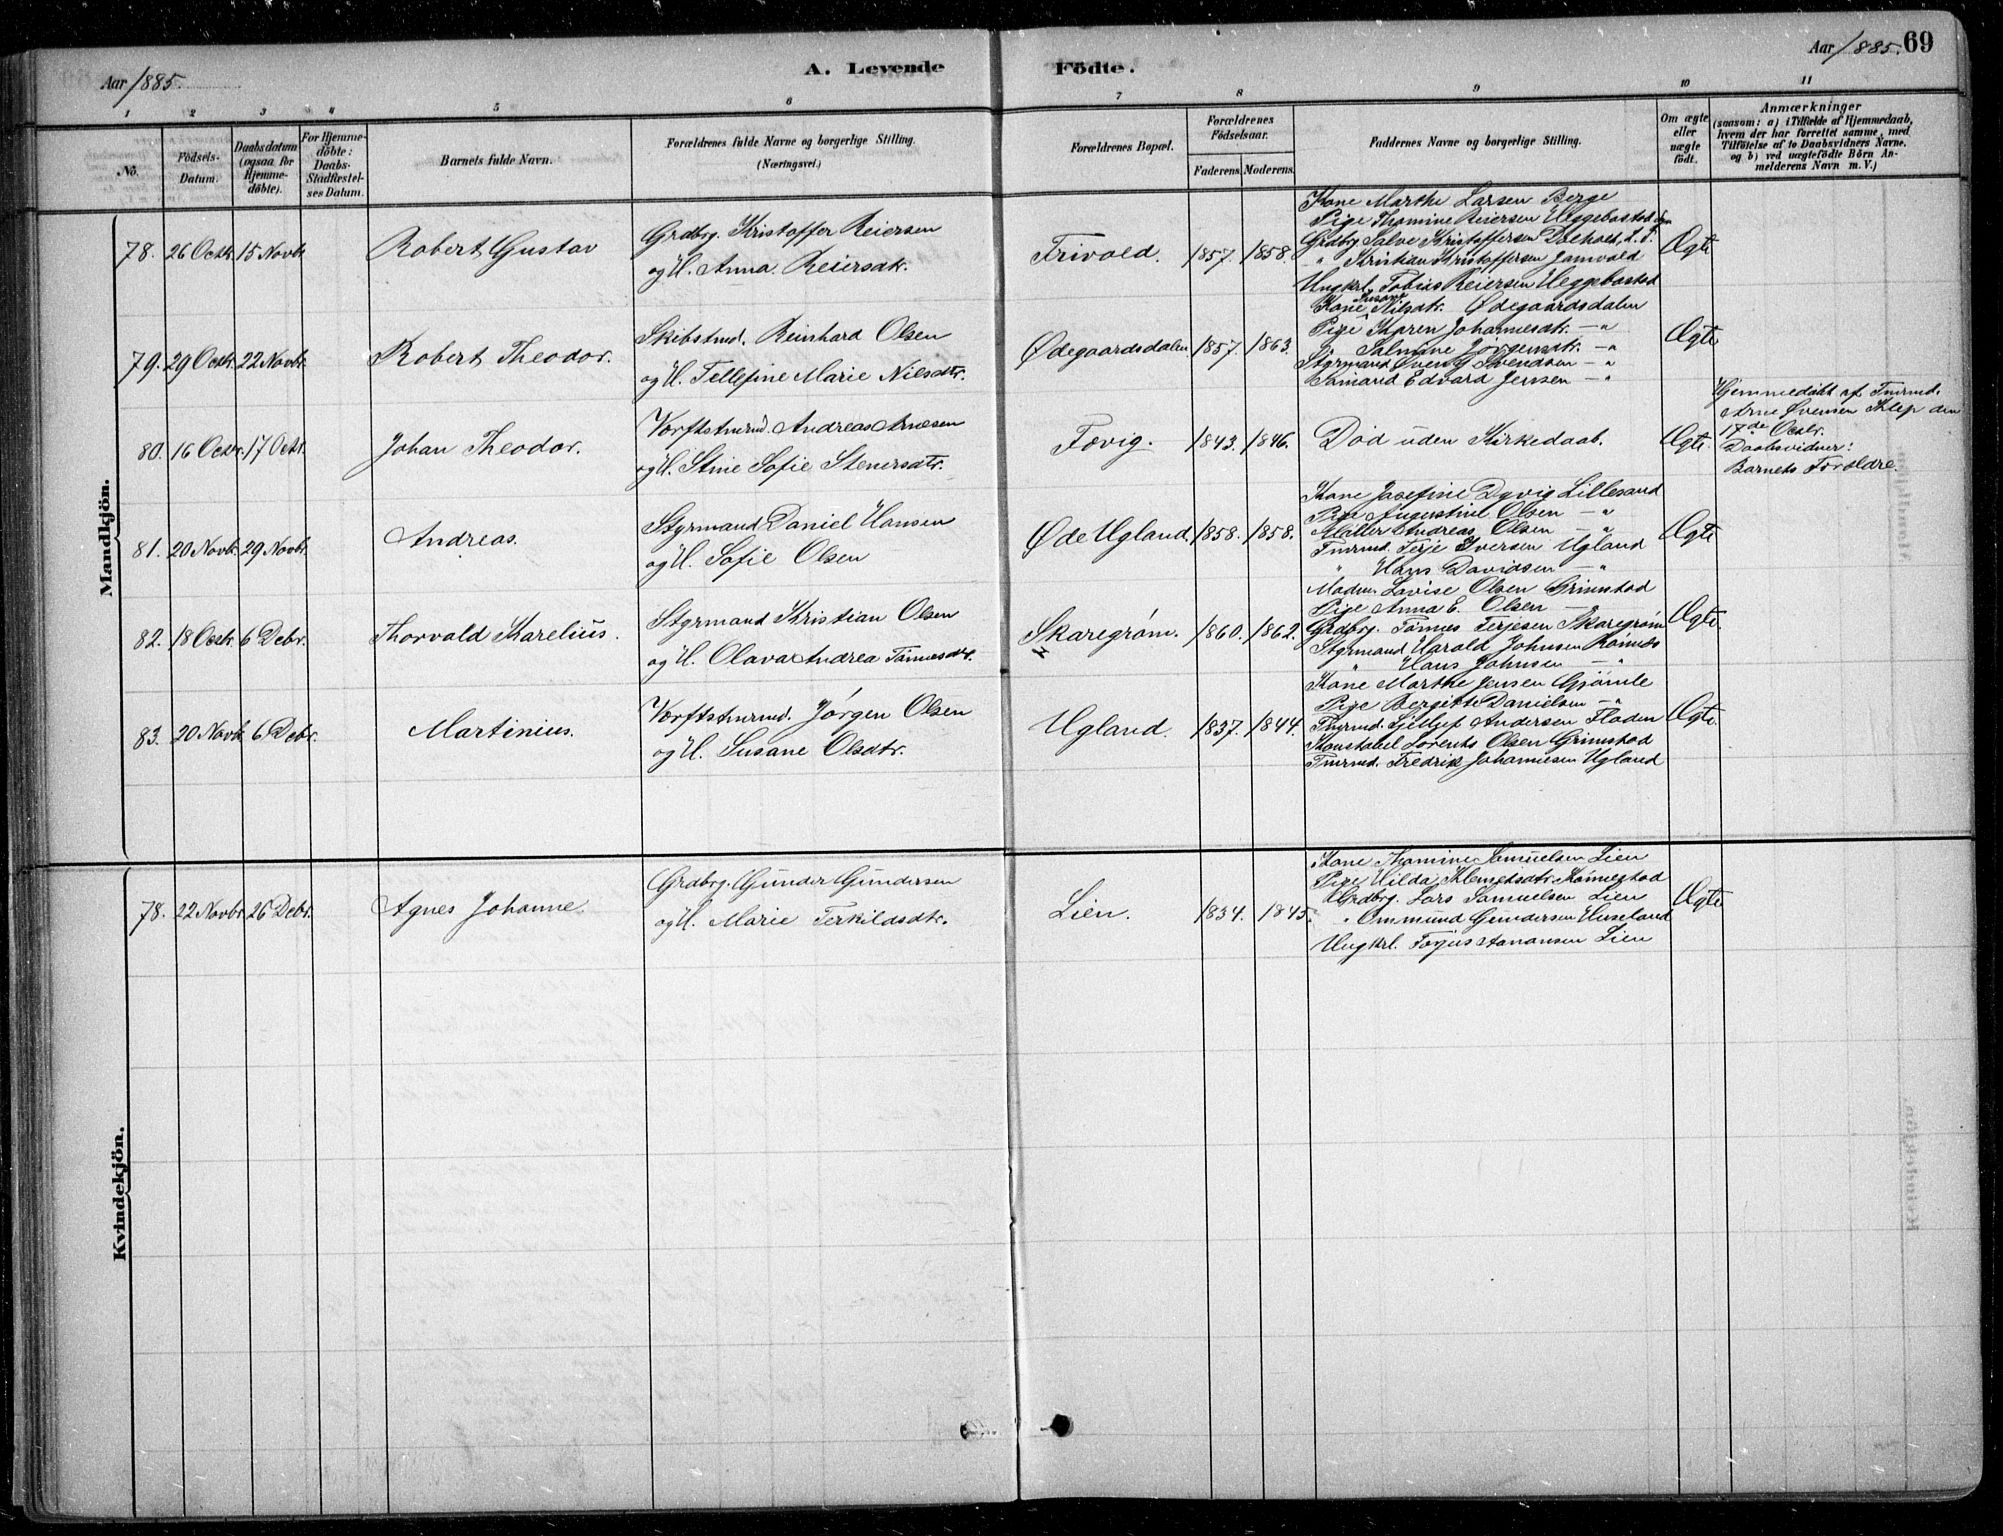 Aar 1885.
A. Levende Födte.
Aar 1885. 69
1 2 3 4 5 6 7 8 9 10 11
No.
Födsels-Datum.
Daabsdatum (ogsaa for Hjemmedöbte).
For Hjemmedöbte: Daabs-Stadfæstelses Datum.
Barnets fulde Navn.
Forældrenes fulde Navne og borgerlige Stilling.
(Næringsvei.)
Forældrenes Bopæl.
Forældrenes Födselsaar.
Faderens. Moderens.
Faddernes Navne og borgerlige Stilling.
Om ægte eller uægte födt.
Anmærkninger
(saasom: a) i Tilfælde af Hjemmedaab, hvem der har forrettet samme, med Tilföielse af to Daabsvidners Navne, og b) ved uægtefödte Börn Anmelderens Navn m. V.)
Mandkjön.
78. 26 Octr. 15 Novbr.
Robert Gustav
Grdbrg. Kristoffer Reiersen
og H. Anna Reiersdtr.
Trivold. 1857. 1858.
Kone Marthe Larsen Berge
Pige Thomine Reiersen Heggebostad
Grdbrg Salve Kristoffersen
" Kristian Kristoffersen Jomvold
Ungkrl. Tobias Reiersen Heggebostad
Ægte
79. 29 Octr. 22 Novbr.
Robert Theodor.
Skibstmd. Reinhard Olsen
og H. Tellefine Marie Nielsdtr.
Ødegaardsdalen 1857. 1863.
Kone Susane Nilsdtr. Ødegaardsdalen
Pige Karen Johannesdtr. — "
" Salmine Jørgensdtr. — "
Styrmand Svend Svendsen — "
Sømand Edvard Jensen — "
Ægte
80. 16 Octr. 17 Octr.
Johan Theodor.
Værftstmrmd. Andreas Arnesen
og H. Stine Sofie Stenersdtr.
Fævig. 1843. 1846.
Død uden Kirkedaab.
Ægte
Hjemmedøbt af Tmrmd.
Arne Evensen Klep den
17de Octbr.
Daabsvidner:
Barnets Forældre.
81. 20 Novbr. 29 Novbr.
Andreas.
Styrmand Daniel Hansen
og H. Sofie Olsen
Øde Ugland. 1858. 1858.
Kone Josefine Dyvig Lillesand
Pige Augustine Olsen — "
Møller Andreas Olsen — "
Tmrmd. Terje Iversen Ugland
" Hans Davidsen — "
Ægte
82. 18 Octr. 6 Decbr.
Thorvald Karelius.
Styrmand Kristian Olsen
og H. Olava Andrea Tønnesdtr.
Skaregrøm. 1860. 1862.
Madm Lovise Olsen Grimstad
Pige Anna E. Olsen — "
Grdbrg. Tønnes Terjesen Skaregrøm
Styrmand Harald Johnsen Rønnes
" Hans Johnsen — "
Ægte.
83. 20 Novbr. 6 Decbr.
Martinius.
Værftstmrmd. Jørgen Olsen
og H. Susane Olsdtr.
Ugland. 1837. 1844.
Kone Marthe Jensen Gjømle
Pige Bergitte Danielsen — "
Tmrmd. Andersen Fladen
Konstabel Lorents Olsen Grimstad
Tmrmd. Fredrik Johannesen Ugland
Ægte
Kvindekjön.
78. 22 Novbr. 26 Decbr.
Agnes Johanne
Grdbrg. Gunder Gundersen
og H. Marie Terkildsdtr.
Lien. 1834. 1845.
Kone Thomine Samuelsen Lien
Pige Hilda Klemetsdtr.
Grdbrg. Lars Samuelsen Lien
" Ommund Gundersen Huseland
Ungkrl. Terjus Aanonsen Lien
Ægte